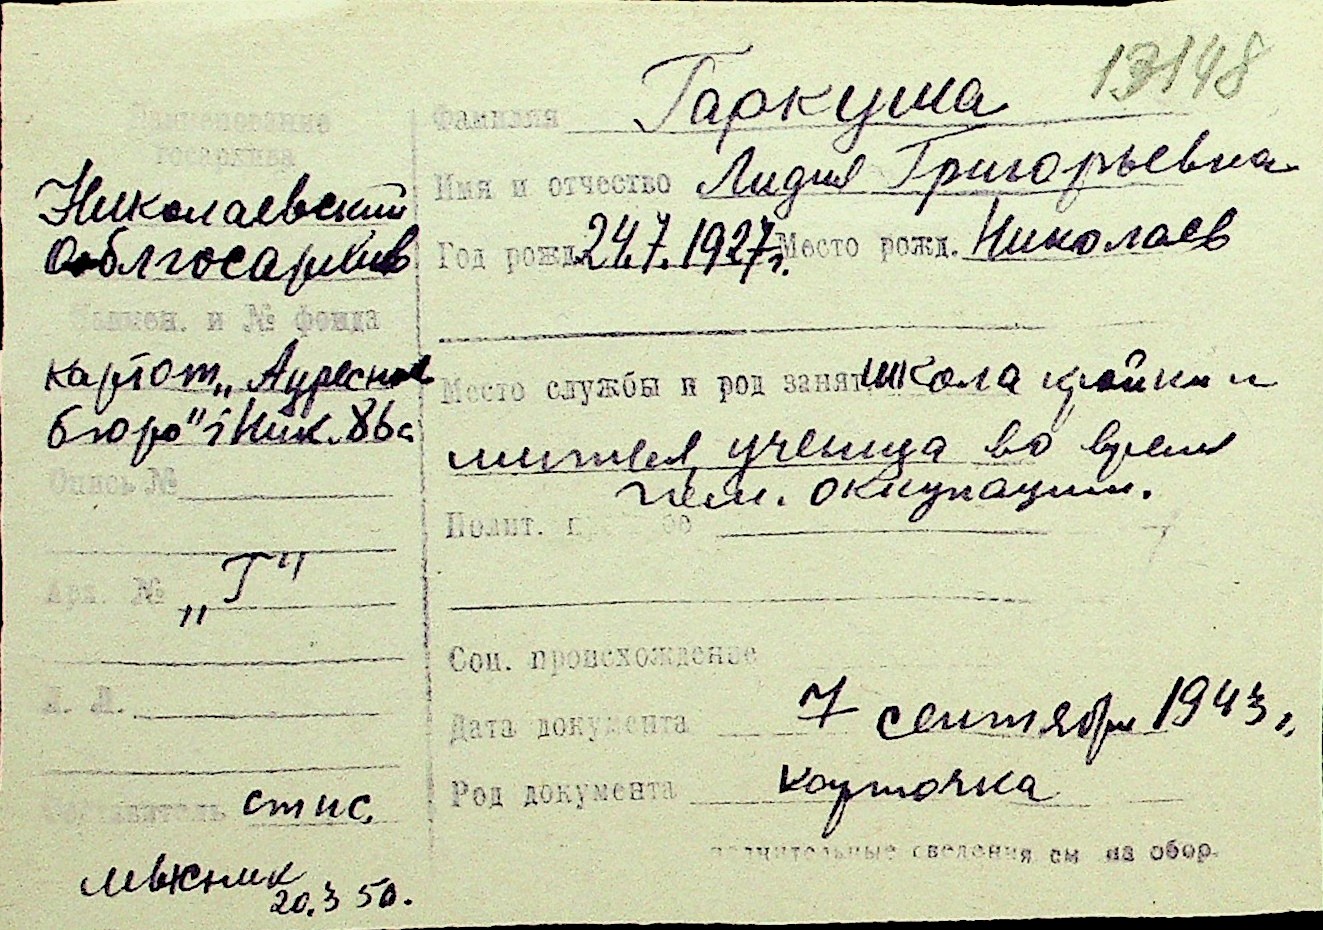 13148
Фамилия Гаркуша
Наименование
госархива
Имя и отчество Лидия Григорьевна
Николаевский
облгосархив
Год рожд. 24.7.1927г. Место рожд. Николаев
Наимен. и № фонда
картот. „Адресное
бюро" г Ник. 86с
Место службы и род занят. школа кройки и
шитья, ученица во время
нем. оккупации.
Опись №
Полит.
Арх. № „Г"
Соц. происхождение
Л. Л.
Дата документа 7 сентября 1943 г.
Род документа карточка
Составитель стис.
полнительные сведения см на обор.
20.3 50.